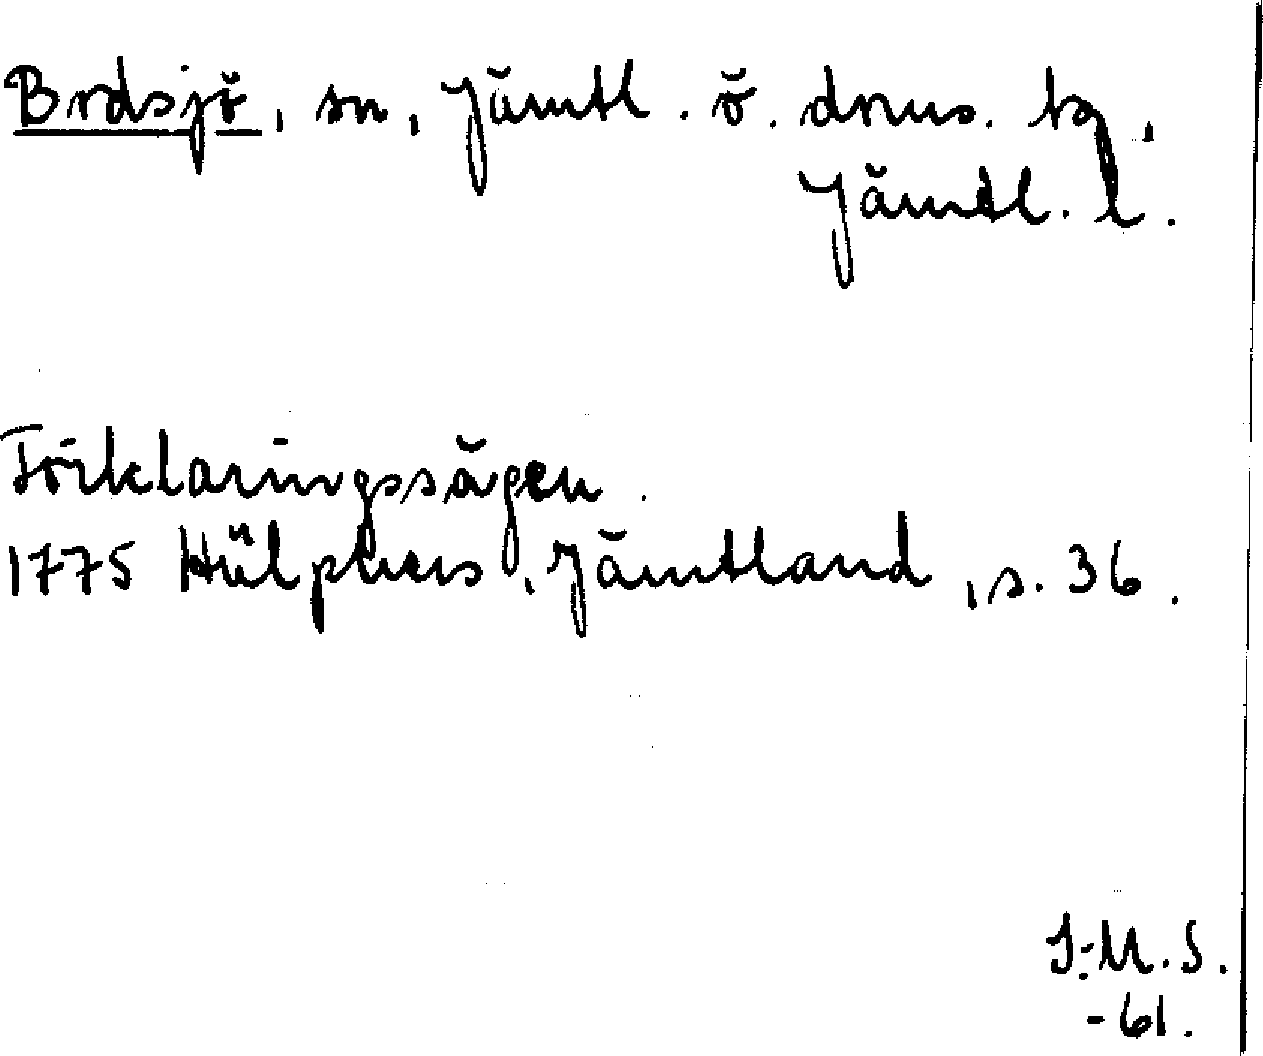 Brdsjö, sn, Jämtl. ö. dms. tg,
Jämtl. l.
Förklaringssägen.
1775 Hülphers, Jämtland, s. 36.
I-M.S.
-61.